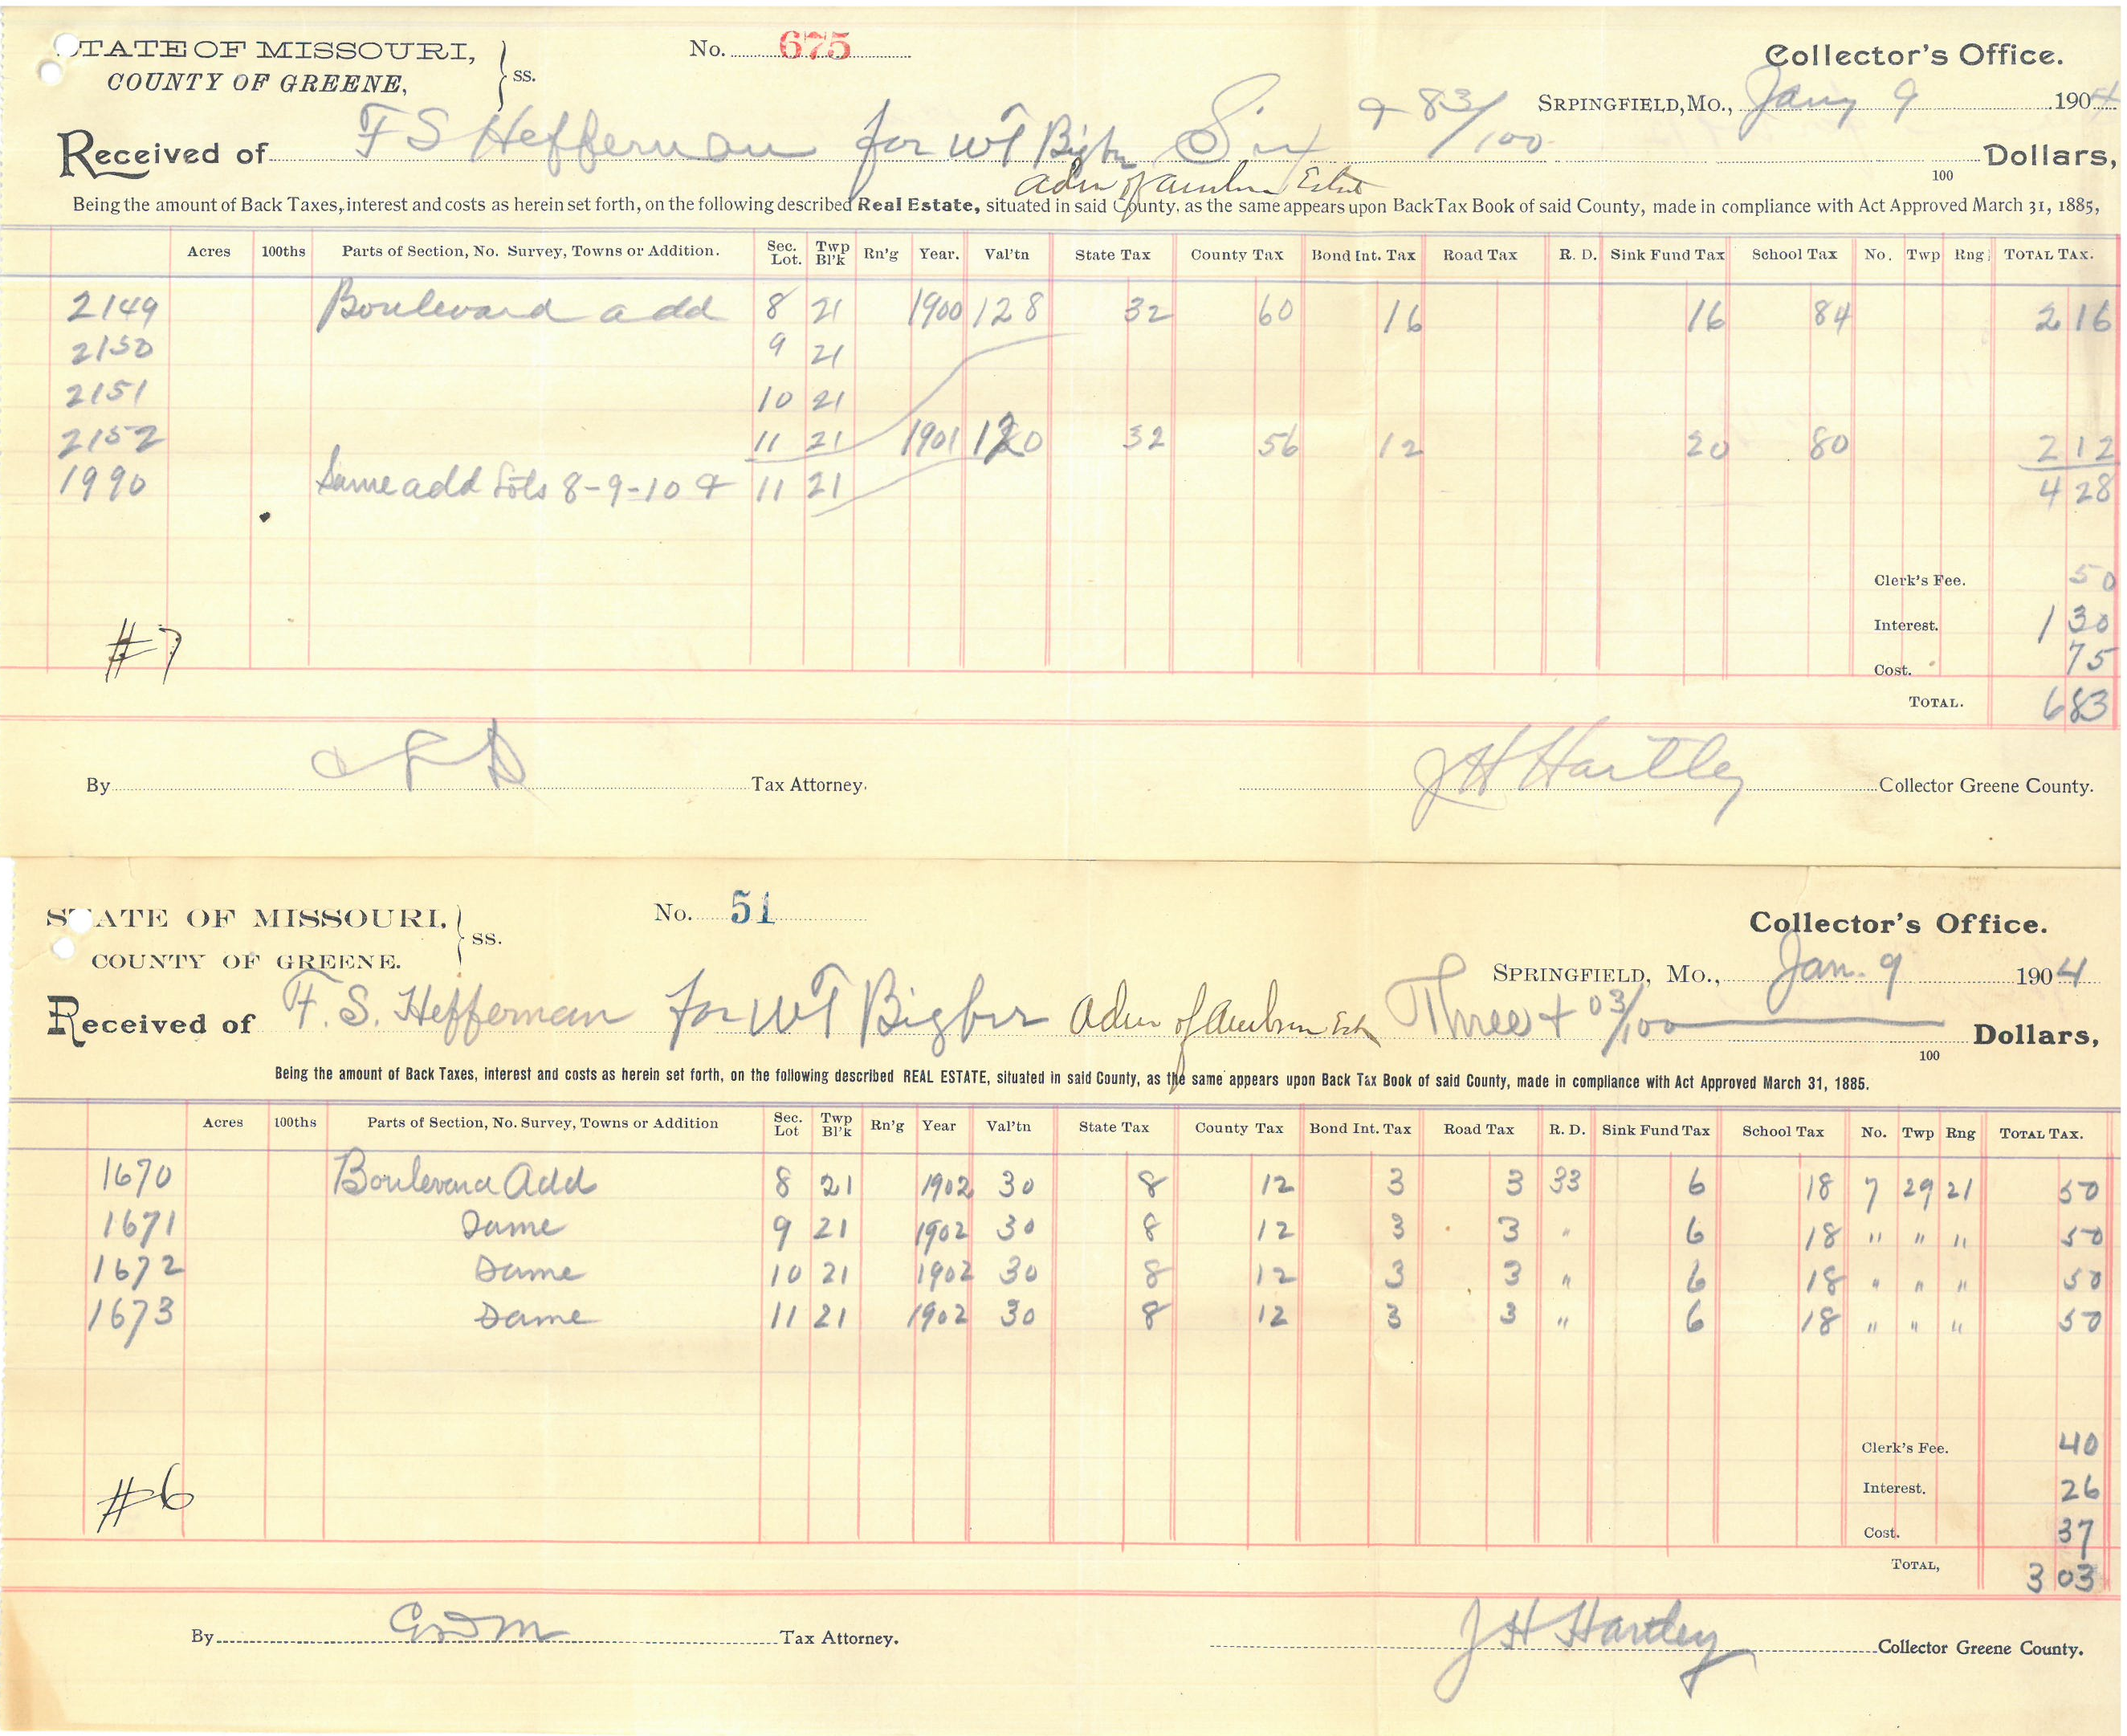 STATE OF MISSOURI,
COUNTY OF GREENE,
} ss.
No. 675
Collector's Office.
SRPINGFIELD, MO., Jany 9 1904
Received of F S Heffernan for WT Bigbee Six & 83/100 Dollars,
100
Adm of Estate
Being the amount of Back Taxes, interest and costs as herein set forth, on the following described Real Estate, situated in said County, as the same appears upon Back Tax Book of said County, made in compliance with Act Approved March 31, 1885,
Acres 100ths Parts of Section, No. Survey, Towns or Addition. Sec. Lot. Twp Bl'k Rn'g Year. Val'tn State Tax County Tax Bond Int. Tax Road Tax R. D. Sink Fund Tax School Tax No. Twp Rng TOTAL TAX.
2149 Boulevard add 8 21 1900 128 32 60 16 16 84 2 16
2150 9 21
2151 10 21
2152 11 21 1901 120 32 56 12 20 80 2 12
1990 Same add Lots 8-9-10 & 11 21 4 28
Clerk's Fee. 50
Interest. 1 30
#7
Cost. 75
TOTAL. 6 83
By Tax Attorney.
J H Hartley Collector Greene County.
STATE OF MISSOURI,
COUNTY OF GREENE.
} SS.
No. 51
Collector's Office.
SPRINGFIELD, MO., Jan. 9 1904
Received of F. S. Heffernan for WT Bigbee Adm of Est Three + 03/100 Dollars,
100
Being the amount of Back Taxes, interest and costs as herein set forth, on the following described REAL ESTATE, situated in said County, as the same appears upon Back Tax Book of said County, made in compliance with Act Approved March 31, 1885.
Acres 100ths Parts of Section, No. Survey, Towns or Addition Sec. Lot Twp Bl'k Rn'g Year Val'tn State Tax County Tax Bond Int. Tax Road Tax R. D. Sink Fund Tax School Tax No. Twp Rng TOTAL TAX.
1670 Boulevard Add 8 21 1902 30 8 12 3 3 33 6 18 7 29 21 50
1671 Same 9 21 1902 30 8 12 3 3 " 6 18 " " " 50
1672 Same 10 21 1902 30 8 12 3 3 " 6 18 " " " 50
1673 Same 11 21 1902 30 8 12 3 3 " 6 18 " " " 50
Clerk's Fee. 40
Interest. 26
#6
Cost. 37
TOTAL, 3 03
By Tax Attorney.
J H Hartley Collector Greene County.